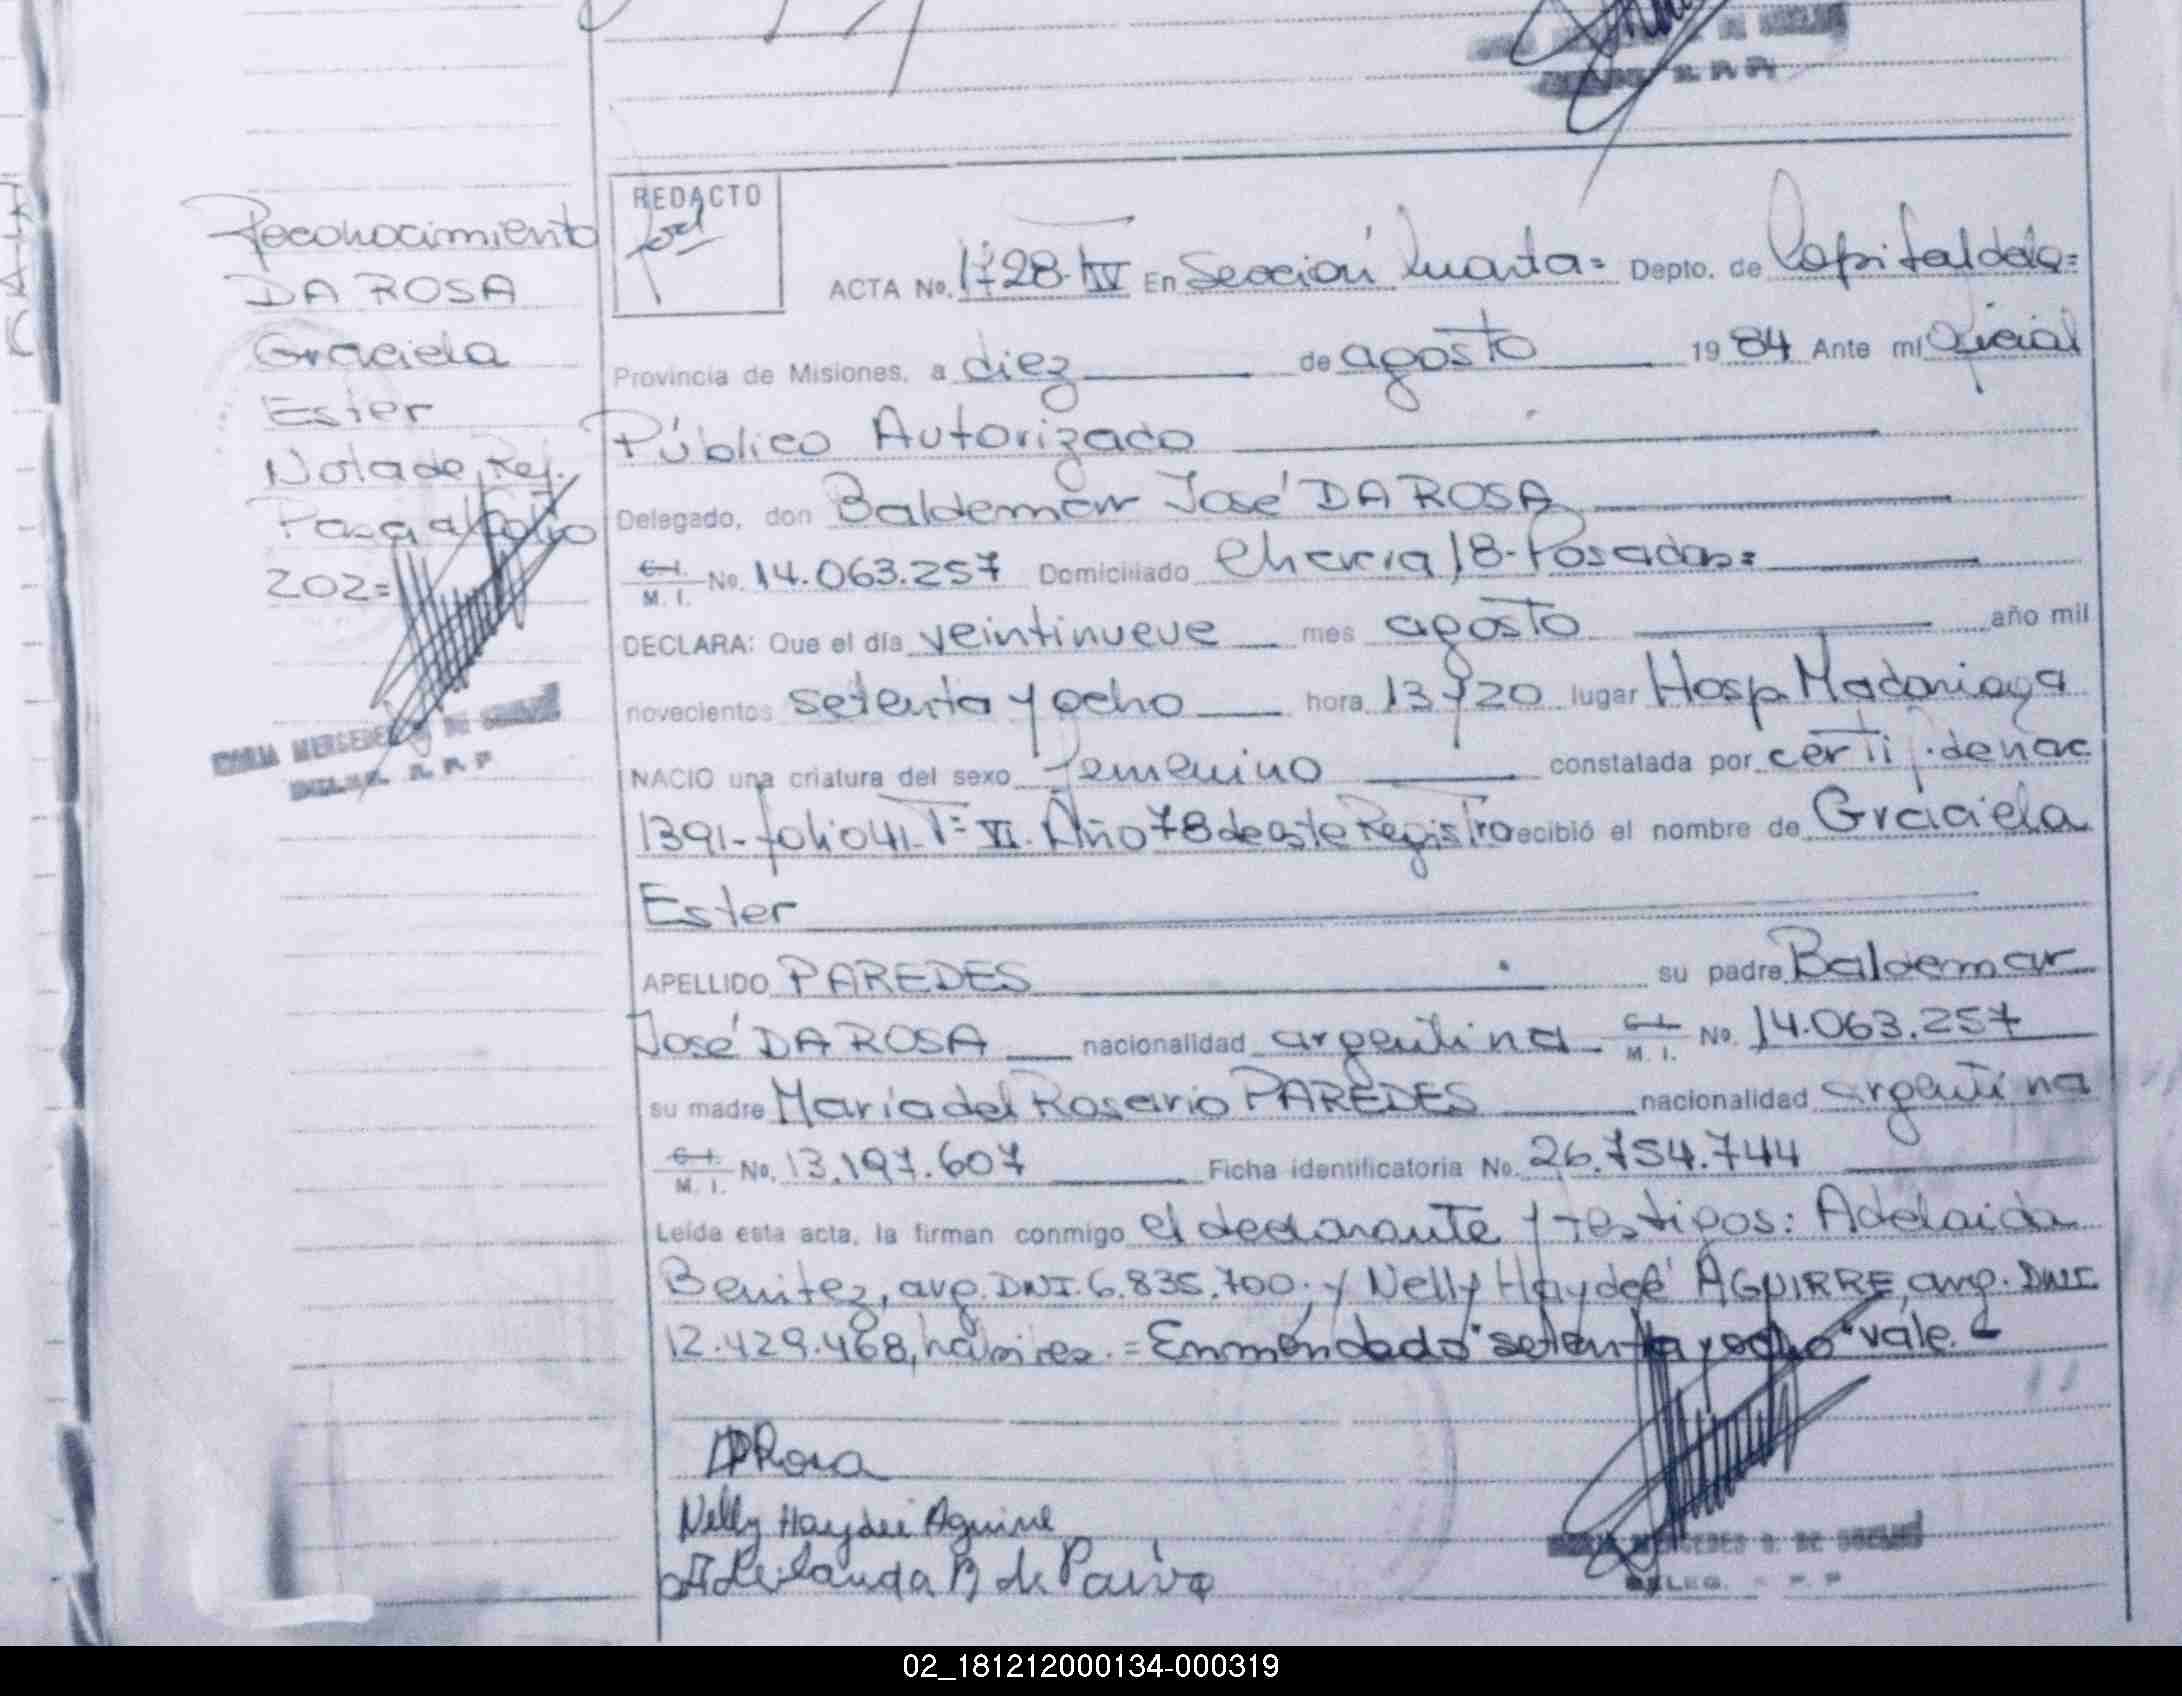 REDACTO
Reconocimiento
DA ROSA
Graciela
Ester
Nota de Ref.
Pasa al folio
202=
MERSEDES DE
ACTA No. 1728-IV En Sección Cuarta= Depto. de Capital de la=
Provincia de Misiones, a diez de agosto 1984 Ante mí Oficial
Público Autorizado
Delegado, don Baldemar José DA ROSA
C. I. M. I. No. 14.063.257 Domiciliado Chacra 18-Posadas=
DECLARA: Que el día veintinueve mes agosto año mil
novecientos setenta y ocho hora 13 y 20 lugar Hosp. Madariaga
NACIO una criatura del sexo femenino constatada por certif. de nac
1391-folio 41-Tº VI. Año 78 de este Registro recibió el nombre de Graciela
Ester
APELLIDO PAREDES su padre Baldemar
José DA ROSA nacionalidad argentina C. I. M. I. No. 14.063.257
su madre María del Rosario PAREDES nacionalidad argentina
C. I. M. I. No. 13.197.607 Ficha identificatoria No. 26.754.744
Leída esta acta, la firman conmigo el declarante y testigos: Adelaida
Benitez, arg. DNI. 6.835.700; y Nelly Haydeé AGUIRRE, arg. DNI
12.429.468, hábiles.= Enmendado "setenta y ocho" vale.=
Rosa
Nelly Haydeé Aguirre
B de Paiva
MERSEDES DE
DELEG. R. P. P
02_181212000134-000319